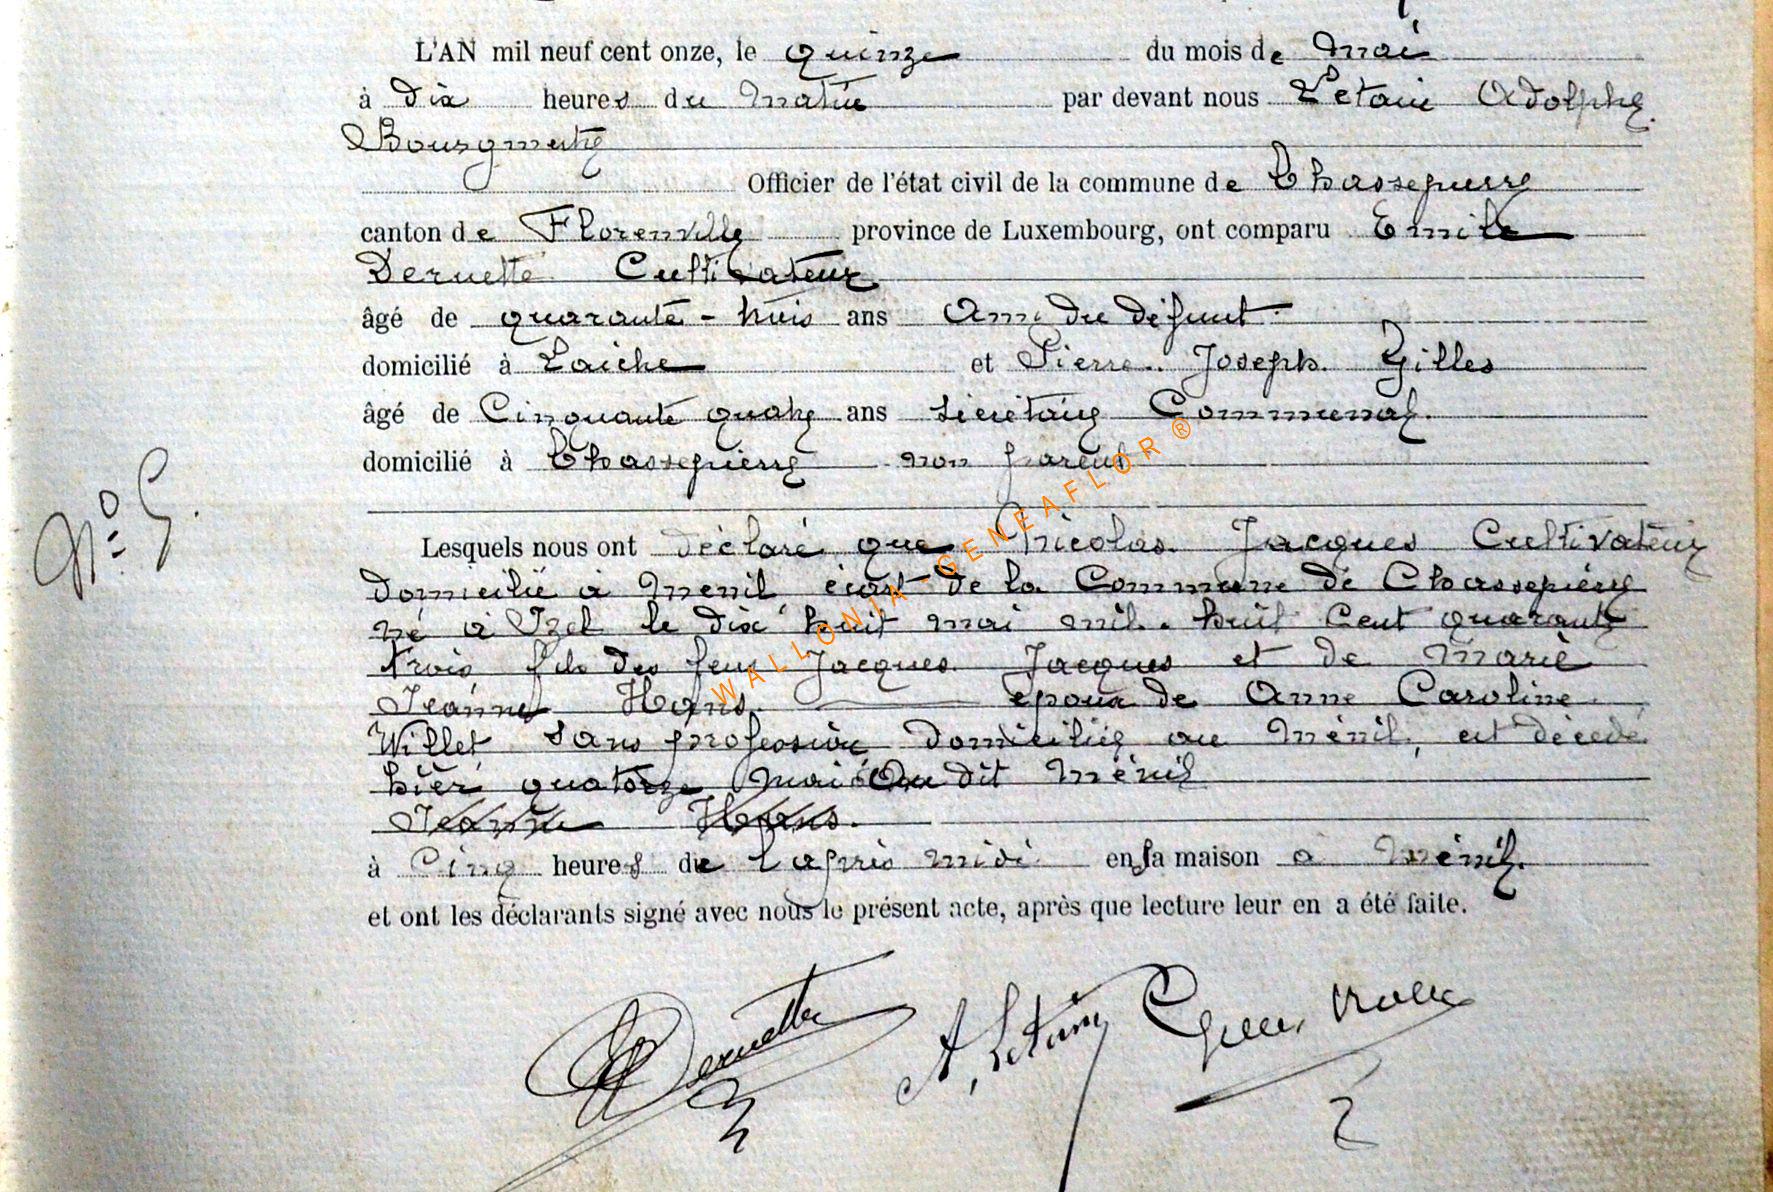 L'AN mil neuf cent onze, le quinze du mois de Mai
à dix heures du Matin par devant nous Letain Adolphe
Bourgmestre
Officier de l'état civil de la commune de Chassepierre
canton de Florenville province de Luxembourg, ont comparu Emile
Deruette Cultivateur
âgé de quarante-trois ans Ami du défunt
domicilié à Laiche et Pierre Joseph Gilles
âgé de Cinquante quatre ans secrétaire Communal.
domicilié à Chassepierre non parent
N° 5.
Lesquels nous ont déclaré que Nicolas Jacques Cultivateur
domicilié à Menil écart de la Commune de Chassepierre
né à Izel le dix huit mai mil huit Cent quarante
trois fils des feus Jacques Jacques et de Marie
Jeanne Hans. époux de Anne Caroline
Willet sans profession domiciliée au Ménil, est décédé
hier quatorze Mai Au dit Ménil
Jeanne Hans.
à Cinq heures de l'après midi en sa maison a Ménil.
et ont les déclarants signé avec nous le présent acte, après que lecture leur en a été faite.
Deruette A. Letain Gilles
WALLONIA-GENEAFLOR®